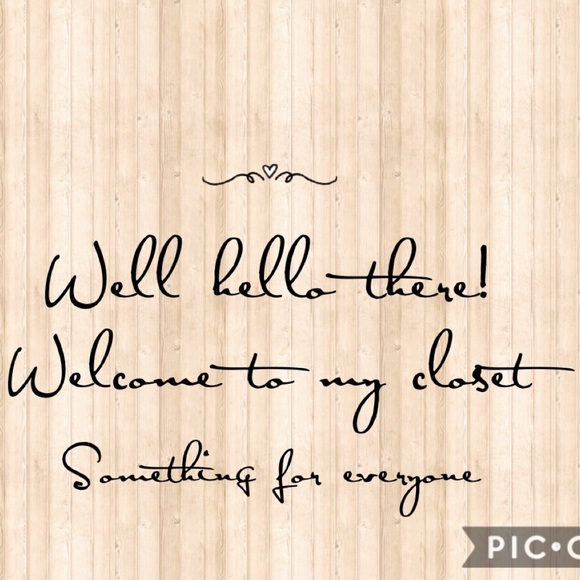 Well hello there!
Welcome to my closet
Something for everyone
PIC•C